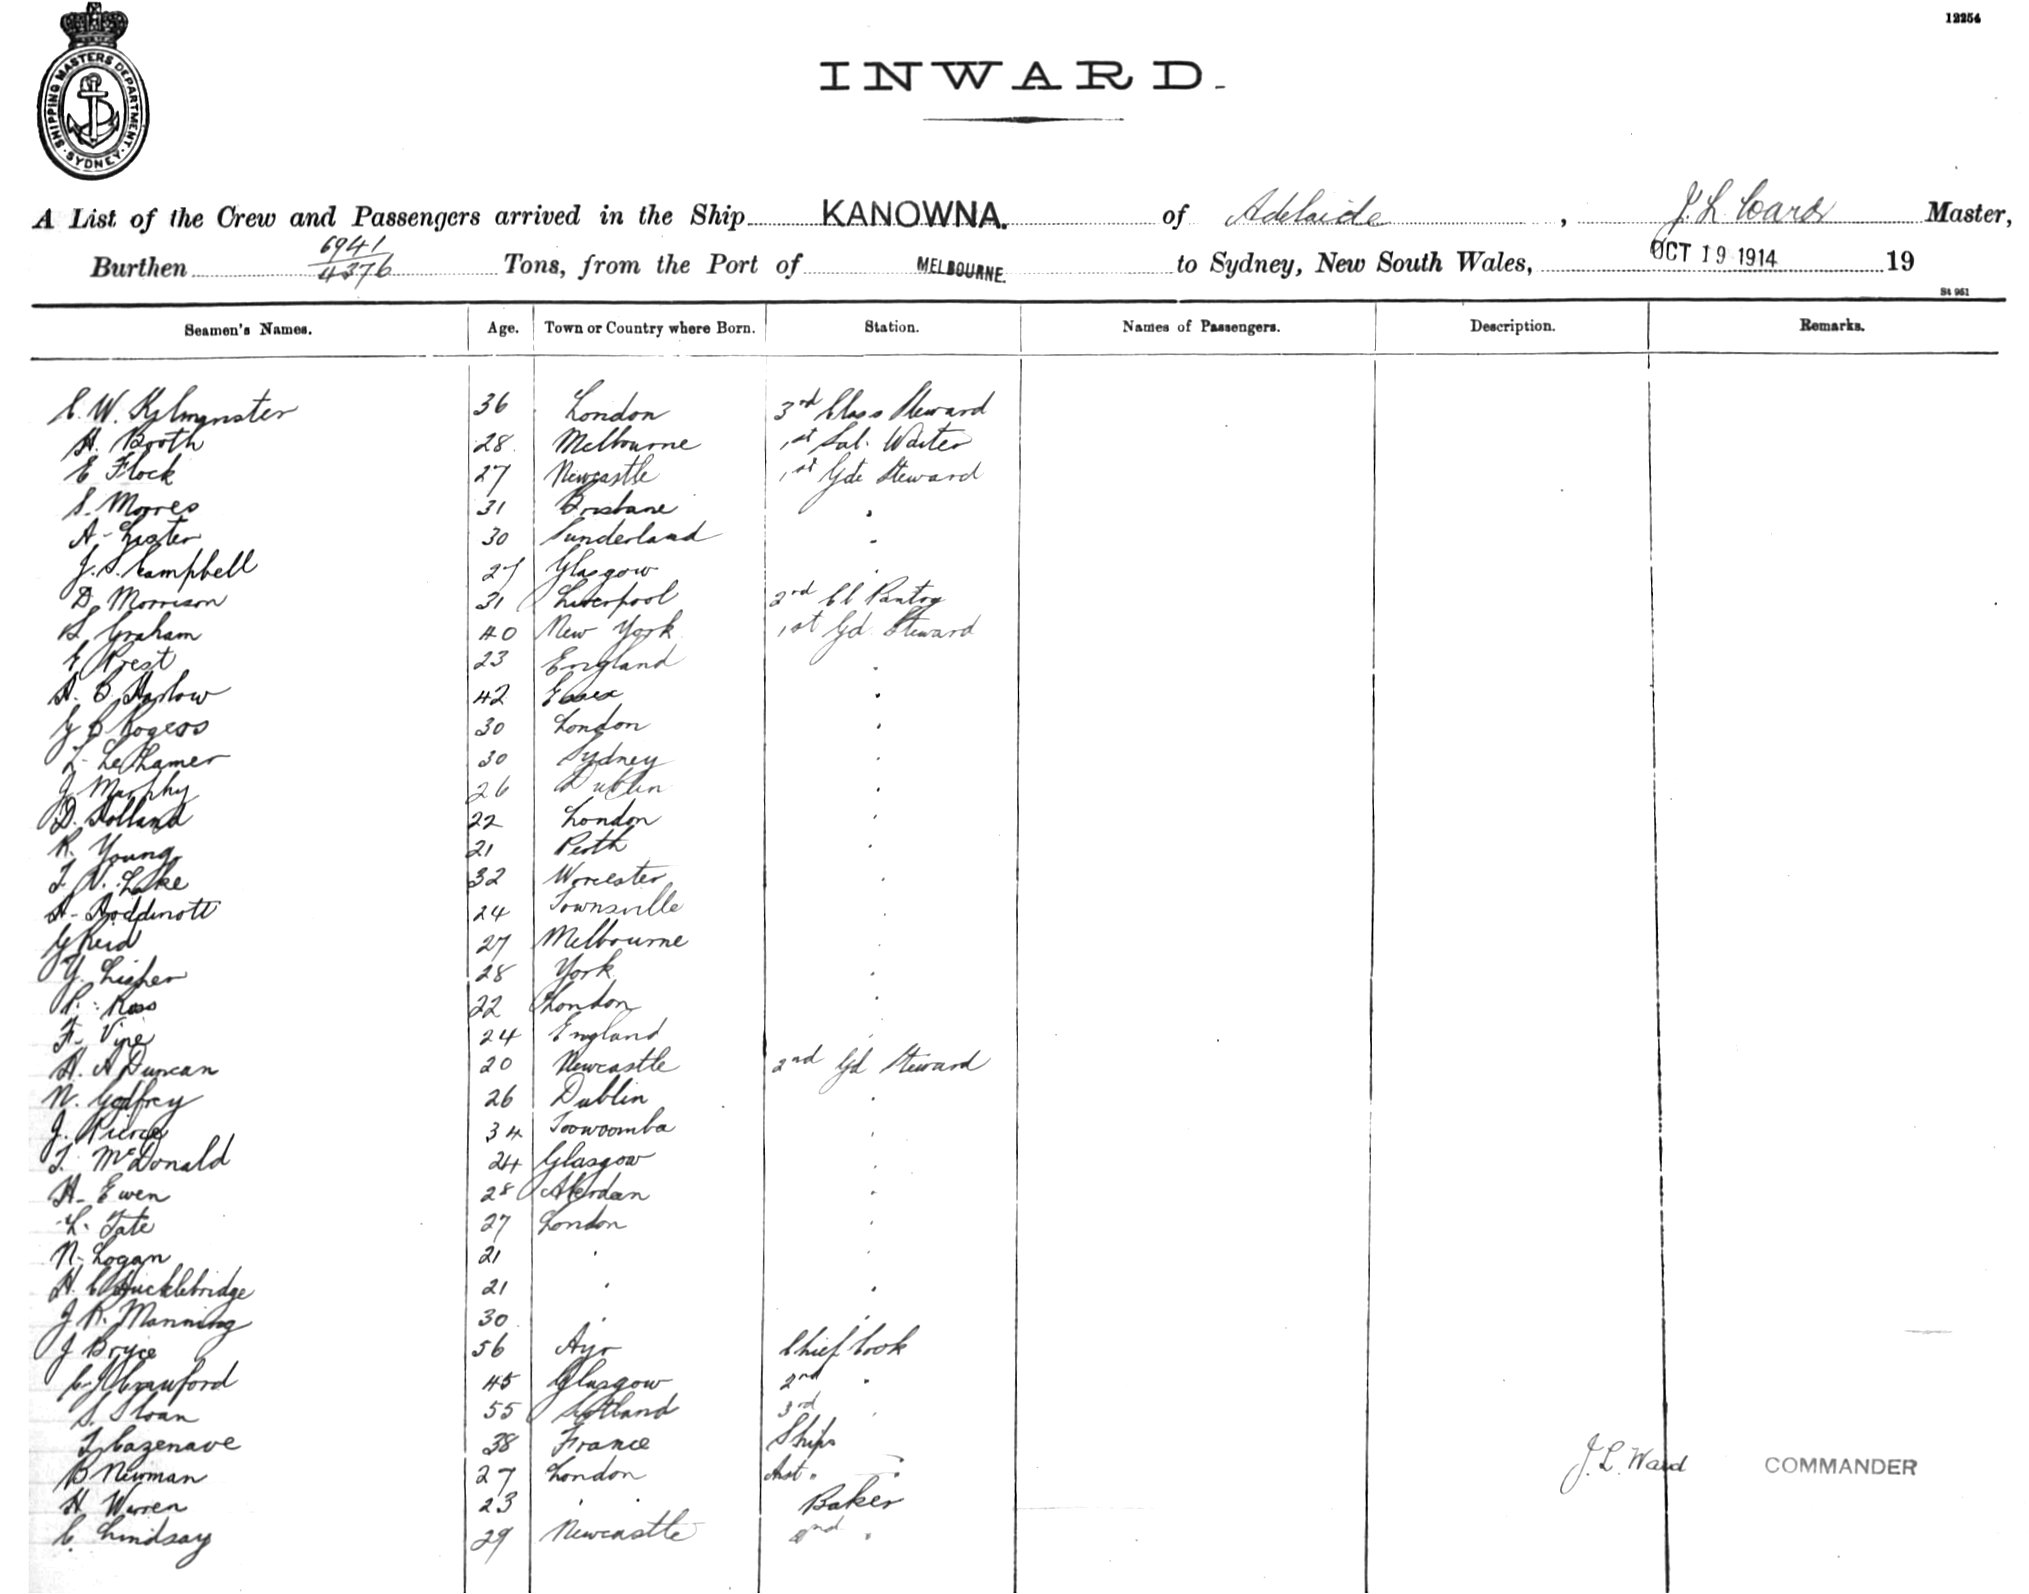 12254
SHIPPING MASTERS DEPARTMENT · SYDNEY ·
INWARD.
A List of the Crew and Passengers arrived in the Ship KANOWNA. of Adelaide, J. L. Ward Master,
Burthen 6941/4376 Tons, from the Port of MELBOURNE. to Sydney, New South Wales, OCT 19 1914 19
St 951
Seamen's Names. Age. Town or Country where Born. Station. Names of Passengers. Description. Remarks.
C. W. Kylmnster 36 London 3rd Class Steward
H. Booth 28 Melbourne 1st Sal. Waiter
E Flock 27 Newcastle 1st Gde Steward
S. Morres 31 Brisbane "
A. Lester 30 Sunderland "
J. S. Campbell 27 Glasgow "
D. Morrison 31 Liverpool 2nd Cl Pantry
Graham 40 New York 1st Gd Steward
E Prest 23 England "
H. B Harlow 42 Essex "
G B Rogers 30 London "
L. Le Lamer 30 Sydney "
J. Murphy 26 Dublin "
D. Holland 22 London "
R. Young 21 Perth "
Lake 32 Worcester "
A. Hoddinott 24 Townsville "
G Reid 27 Melbourne "
Y. Lisher 28 York "
P. Ross 22 London "
F. Vine 24 England "
H. A Duncan 20 Newcastle 2nd Gd Steward
N. Godfrey 26 Dublin "
J. Pierce 34 Toowoomba "
T. McDonald 24 Glasgow "
H. Ewen 28 Aberdeen "
L. Tate 27 London "
N. Logan 21 " "
H. C Hucklebridge 21 " "
J. R. Manning 30 " "
J Bryce 56 Ayr Chief Cook
C. J Crawford 45 Glasgow 2nd "
S. Sloan 55 Scotland 3rd "
T. Cazenave 38 France Ships "
B Newman 27 London Asst. " " J. L. Ward COMMANDER
H Warren 23 " Baker
C. Lindsay 29 Newcastle 2nd "